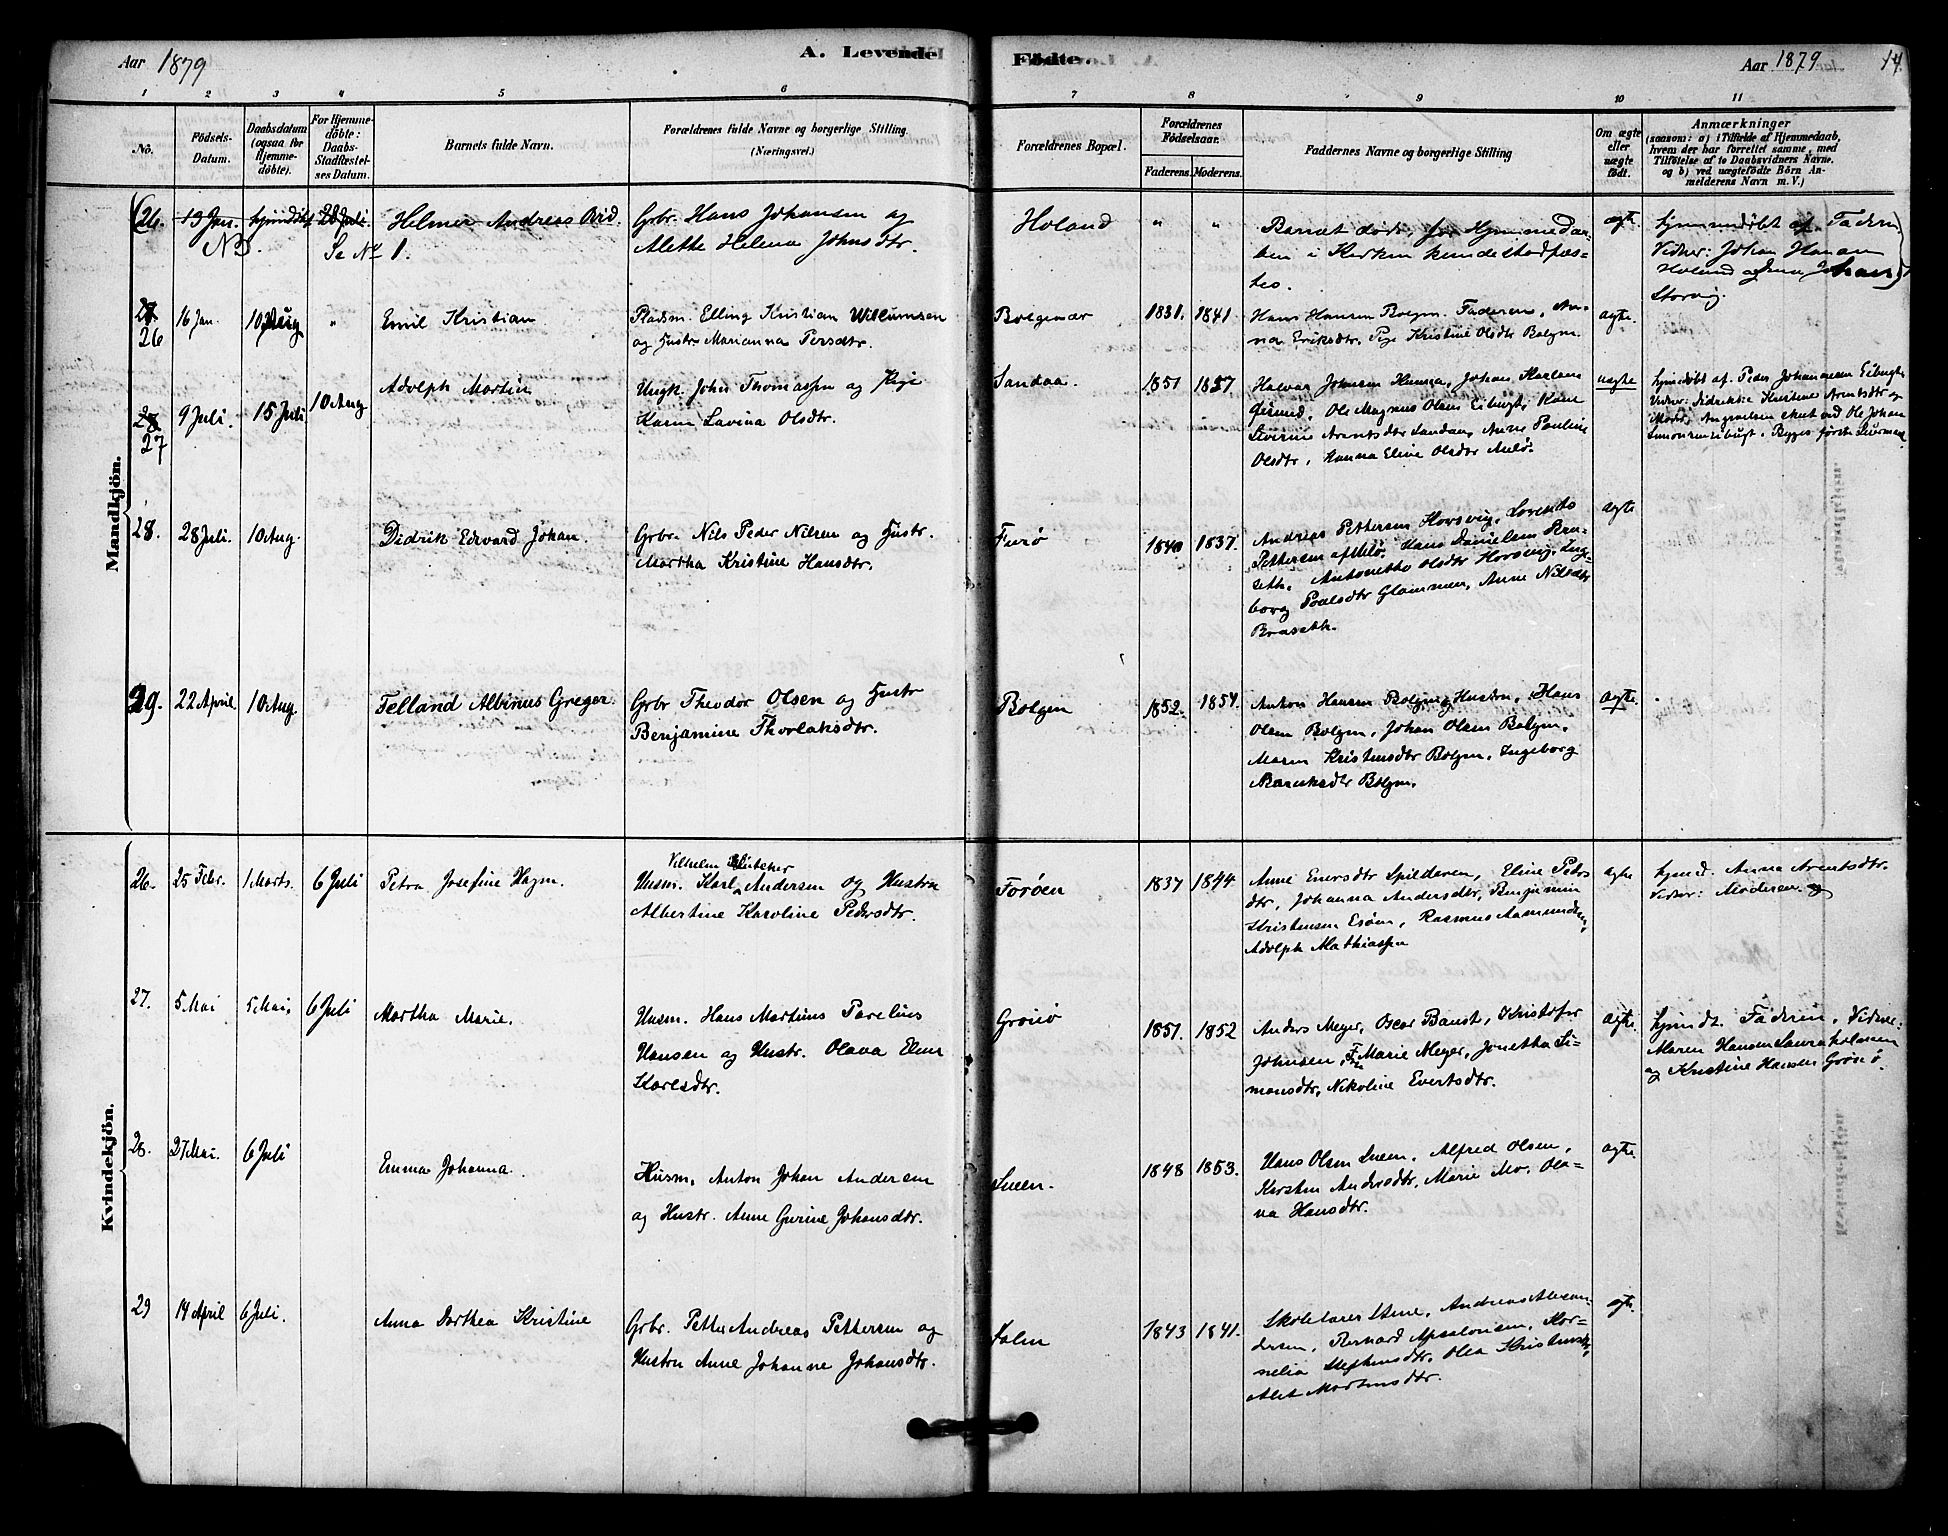 Aar 1879
A. Levende
Fødte.
Aar 1879
14
1 2 3 4 5 6 7 8 9 10 11
No.
Fødsels-
Datum.
Daabsdatum
(ogsaa for
Hjemme-
døbte).
For Hjemme-
døbte:
Daabs-
Stadfæstel-
ses Datum.
Barnets fulde Navn.
Forældrenes fulde Navne og borgerlige Stilling.
(Næringsvei.)
Forældrenes Bopæl.
Forældrenes
Fødselsaar.
Faderens. Moderens.
Faddernes Navne og borgerlige Stilling
Om ægte
eller
uægte
født.
Anmærkninger
(saasom: a) i Tilfælde af Hjemmedaab,
hvem der har forrettet samme, med
Tilføielse af to Daabsvidners Navne.
og b) ved uægtefødte Børn An-
melderens Navn m. V.)
Mandkjön.
26. 19 Jan. 20 Juli. Helmer Andreas
NB. Se No 1.
Grbr. Hans Johansen og
Alette Helena Johnsdtr.
Holand
" "
Barnet døde, før Hjemmedaa-
ben i Kirken kunde stadfæs-
tes.
ægte
Hjemmedøbt af Faderen
Vidner: Johan Hansen
Holand og Johan
Storvig.
26 16 Jan. 10 Aug. " Emil Kristian
Pladsm. Elling Kristian Willumsen
og Hustr. Marianna Persdtr.
Bolgenær
1831. 1841.
Hans Hansen Bolgen. Faderen, An-
na Eriksdtr. Pige Kristine Olsdtr Bolgen
ægte.
27 9 Juli. 15 Juli 10 Aug Adolph Martin
Ungk. John Thomassen og Pige
Karen Lavina Olsdtr.
Sandaa.
1851 1857
Halvar Johnsen Johan
Ole Magnus Olsen Eibugt. Karen
Severine Arentsdtr Sandaa, Anne Pauline
Olsdtr, Hanna Eline Olsdtr
uægte
Hjemdøbt af Peder Johannesen Eibugt
Vidner: Didrikke Kristine Arentsdtr og
Moder. Angivelsen skeet ved Ole Johan
Simonsen Eibugt. Begges første Leiermaal
28. 28 Juli. 10 Aug. Didrik Edvard Johan.
Grbr. Nils Peder Nilsen og Hustr.
Martha Kristine Hansdtr.
Furø
1840 1837.
Andreas Pettersen Horsvig, Lorents
Pettersen Hans Danielsen Bra-
seth. Antonette Olsdtr Horsvig, Inge-
borg Poulsdtr Glommen, Anne Nilsdtr
Braseth.
ægte
29. 22 April. 10 Aug. Telland Albinus Greger.
Grbr Theodor Olsen og Hustr
Benjamine Thorlaksdtr.
Bolgen
1852. 1854.
Anton Hansen Bolgen og Hustru, Hans
Olsen Bolgen, Johan Olsen Bolgen,
Maren Kristensdtr Bolgen, Ingeborg
Bolgen.
ægte.
Kvindekjön.
26. 25 Febr. 1 Marts. 6 Juli Petra Josefine Hagen.
Vilhelm
Husm. Karl Andersen og Hustru
Albertine Karoline Pedersdtr.
Forøen
1837 1844
Anne Eversdtr Spilderen, Eline Peders
dtr, Johanna Andersdtr, Benjamin
Kristensen Rasmus Aamundsen,
Adolph Mathiassen
ægte
Hjemd. Anna Arentsdtr.
Vidner: Moderen og
27. 5 Mai 5 Mai. 6 Juli Martha Marie.
Husm. Hans Martinus Parelius
Hansen og Hustr. Olava Elene
Karlsdtr.
Grønø
1851. 1852
Anders Meyer, Oscar Kristofer
Johnsen, Marie Meyer, Jonetha Si-
monsdtr, Nikoline Evertsdtr.
ægte.
Hjemdt. Faderen, Vidner:
Maren Hansen Laura
og Kristine Hansen Grønø.
28. 27 Mai. 6 Juli Emma Johanna.
Husm. Anton Johan Andersen
og Hustr. Anne Gurine Johansdtr.
1848 1853.
Hans Olsen Alfred Olsen,
Kersten Andersdtr, Marie Mo, Ola-
na Hansdtr.
ægte.
29 14 April 6 Juli. Anna Dorthea Kristine
Grbr. Petter Andreas Pettersen og
Hustru Anne Johanne Johansdtr.
1843 1841.
Skolelærer Stene, Andreas
dersen, Bernard Apsalonsen, Kor-
nelia Steffensdtr. Olea
Alet Mortensdtr.
ægte.